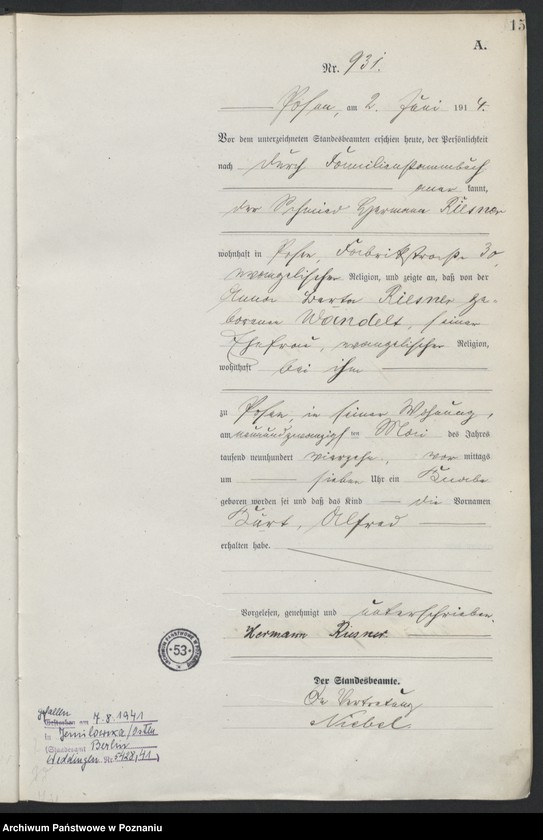 15
A.
Nr. 931.
Posen, am 2. Juni 1914.
Vor dem unterzeichneten Standesbeamten erschien heute, der Persönlichkeit
nach durch Familienstammbuch
aner kannt,
der Schmied Hermann Riesner
wohnhaft in Posen, Fabrikstraße 30,
evangelischer Religion, und zeigte an, daß von der
Anna Berta Riesner ge-
borenen Wandelt, seiner
Ehefrau, evangelischer Religion,
wohnhaft bei ihm
zu Posen, in seiner Wohnung,
am neunundzwanzigsten Mai des Jahres
tausend neunhundert vierzehn, vor mittags
um sieben Uhr ein Knabe
geboren worden sei und daß das Kind die Vornamen
Kurt, Alfred
erhalten habe.
Vorgelesen, genehmigt und unterschrieben.
Hermann Riesner
Der Standesbeamte.
In Vertretung
Niebel
ARCHIWUM PAŃSTWOWE W POZNANIU
53
gefallen
Gestorben am 7.8.1941
in
(Standesamt Berlin
Weddingen Nr 5428/41)
Archiwum Państwowe w Poznaniu